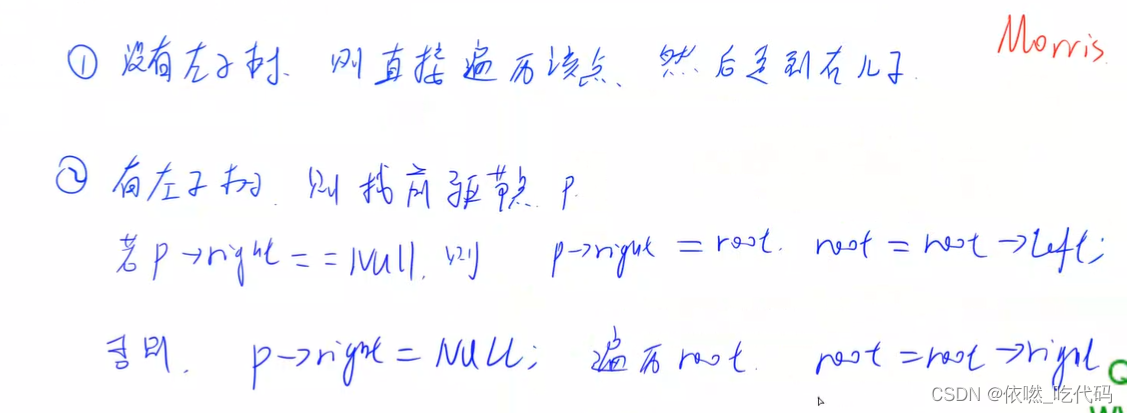 Morris.
① 没有左子树、则直接遍历该点、然后走到右儿子.
② 有左子树. 则找前驱节点 P.
若 P→right == NULL, 则 p→right = root. root = root→left;
否则. p→right = NULL; 遍历 root. root = root→right
Q
CSDN @依嘫_吃代码